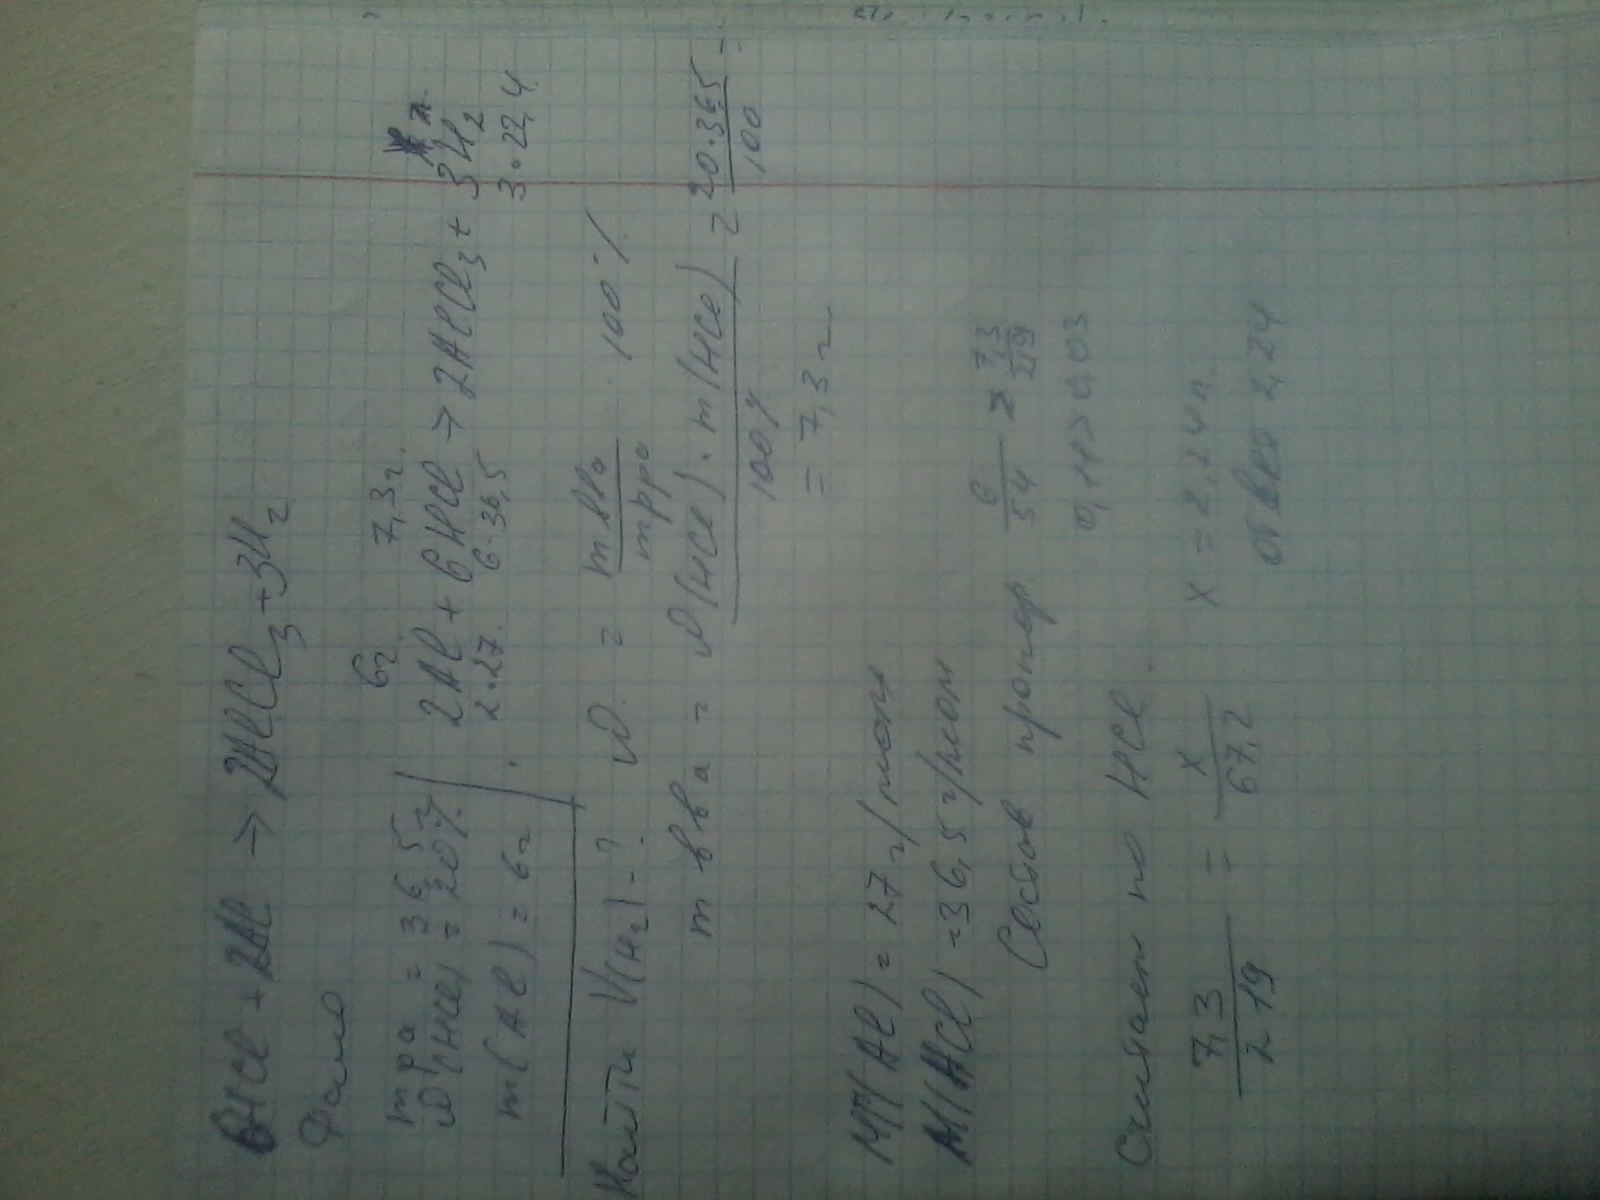 6HCl + 2Al → 2AlCl3 + 3H2
Дано
m р-ра = 36,5 г
ω(HCl) = 20%
m(Al) = 6г
Найти V(H2) - ?
6г. 7,3г. x л
2Al + 6HCl → 2AlCl3 + 3H2
2·27. 6·36,5 3·22,4
ω = m вва / m рра · 100%
m вва = ω(HCl) · m(HCl) / 100% = 20·36,5 / 100 =
= 7,3 г
M(Al) = 27 г/моль
M(HCl) = 36,5 г/моль
Состав пропор 6/54 > 7,3/219
0,11 > 0,03
Считаем по HCl.
7,3/219 = x/67,2 x = 2,24 л.
ответ 2,24